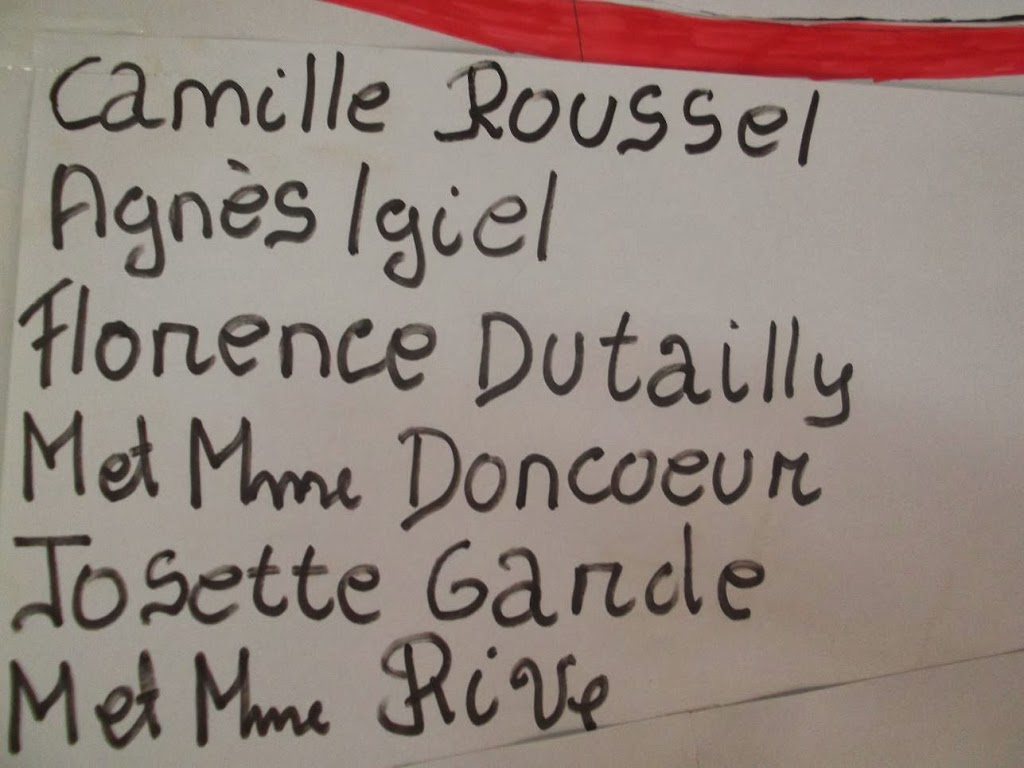 Camille Roussel
Agnès Igiel
Florence Dutailly
M et Mme Doncoeur
Josette Garde
M et Mme Rive